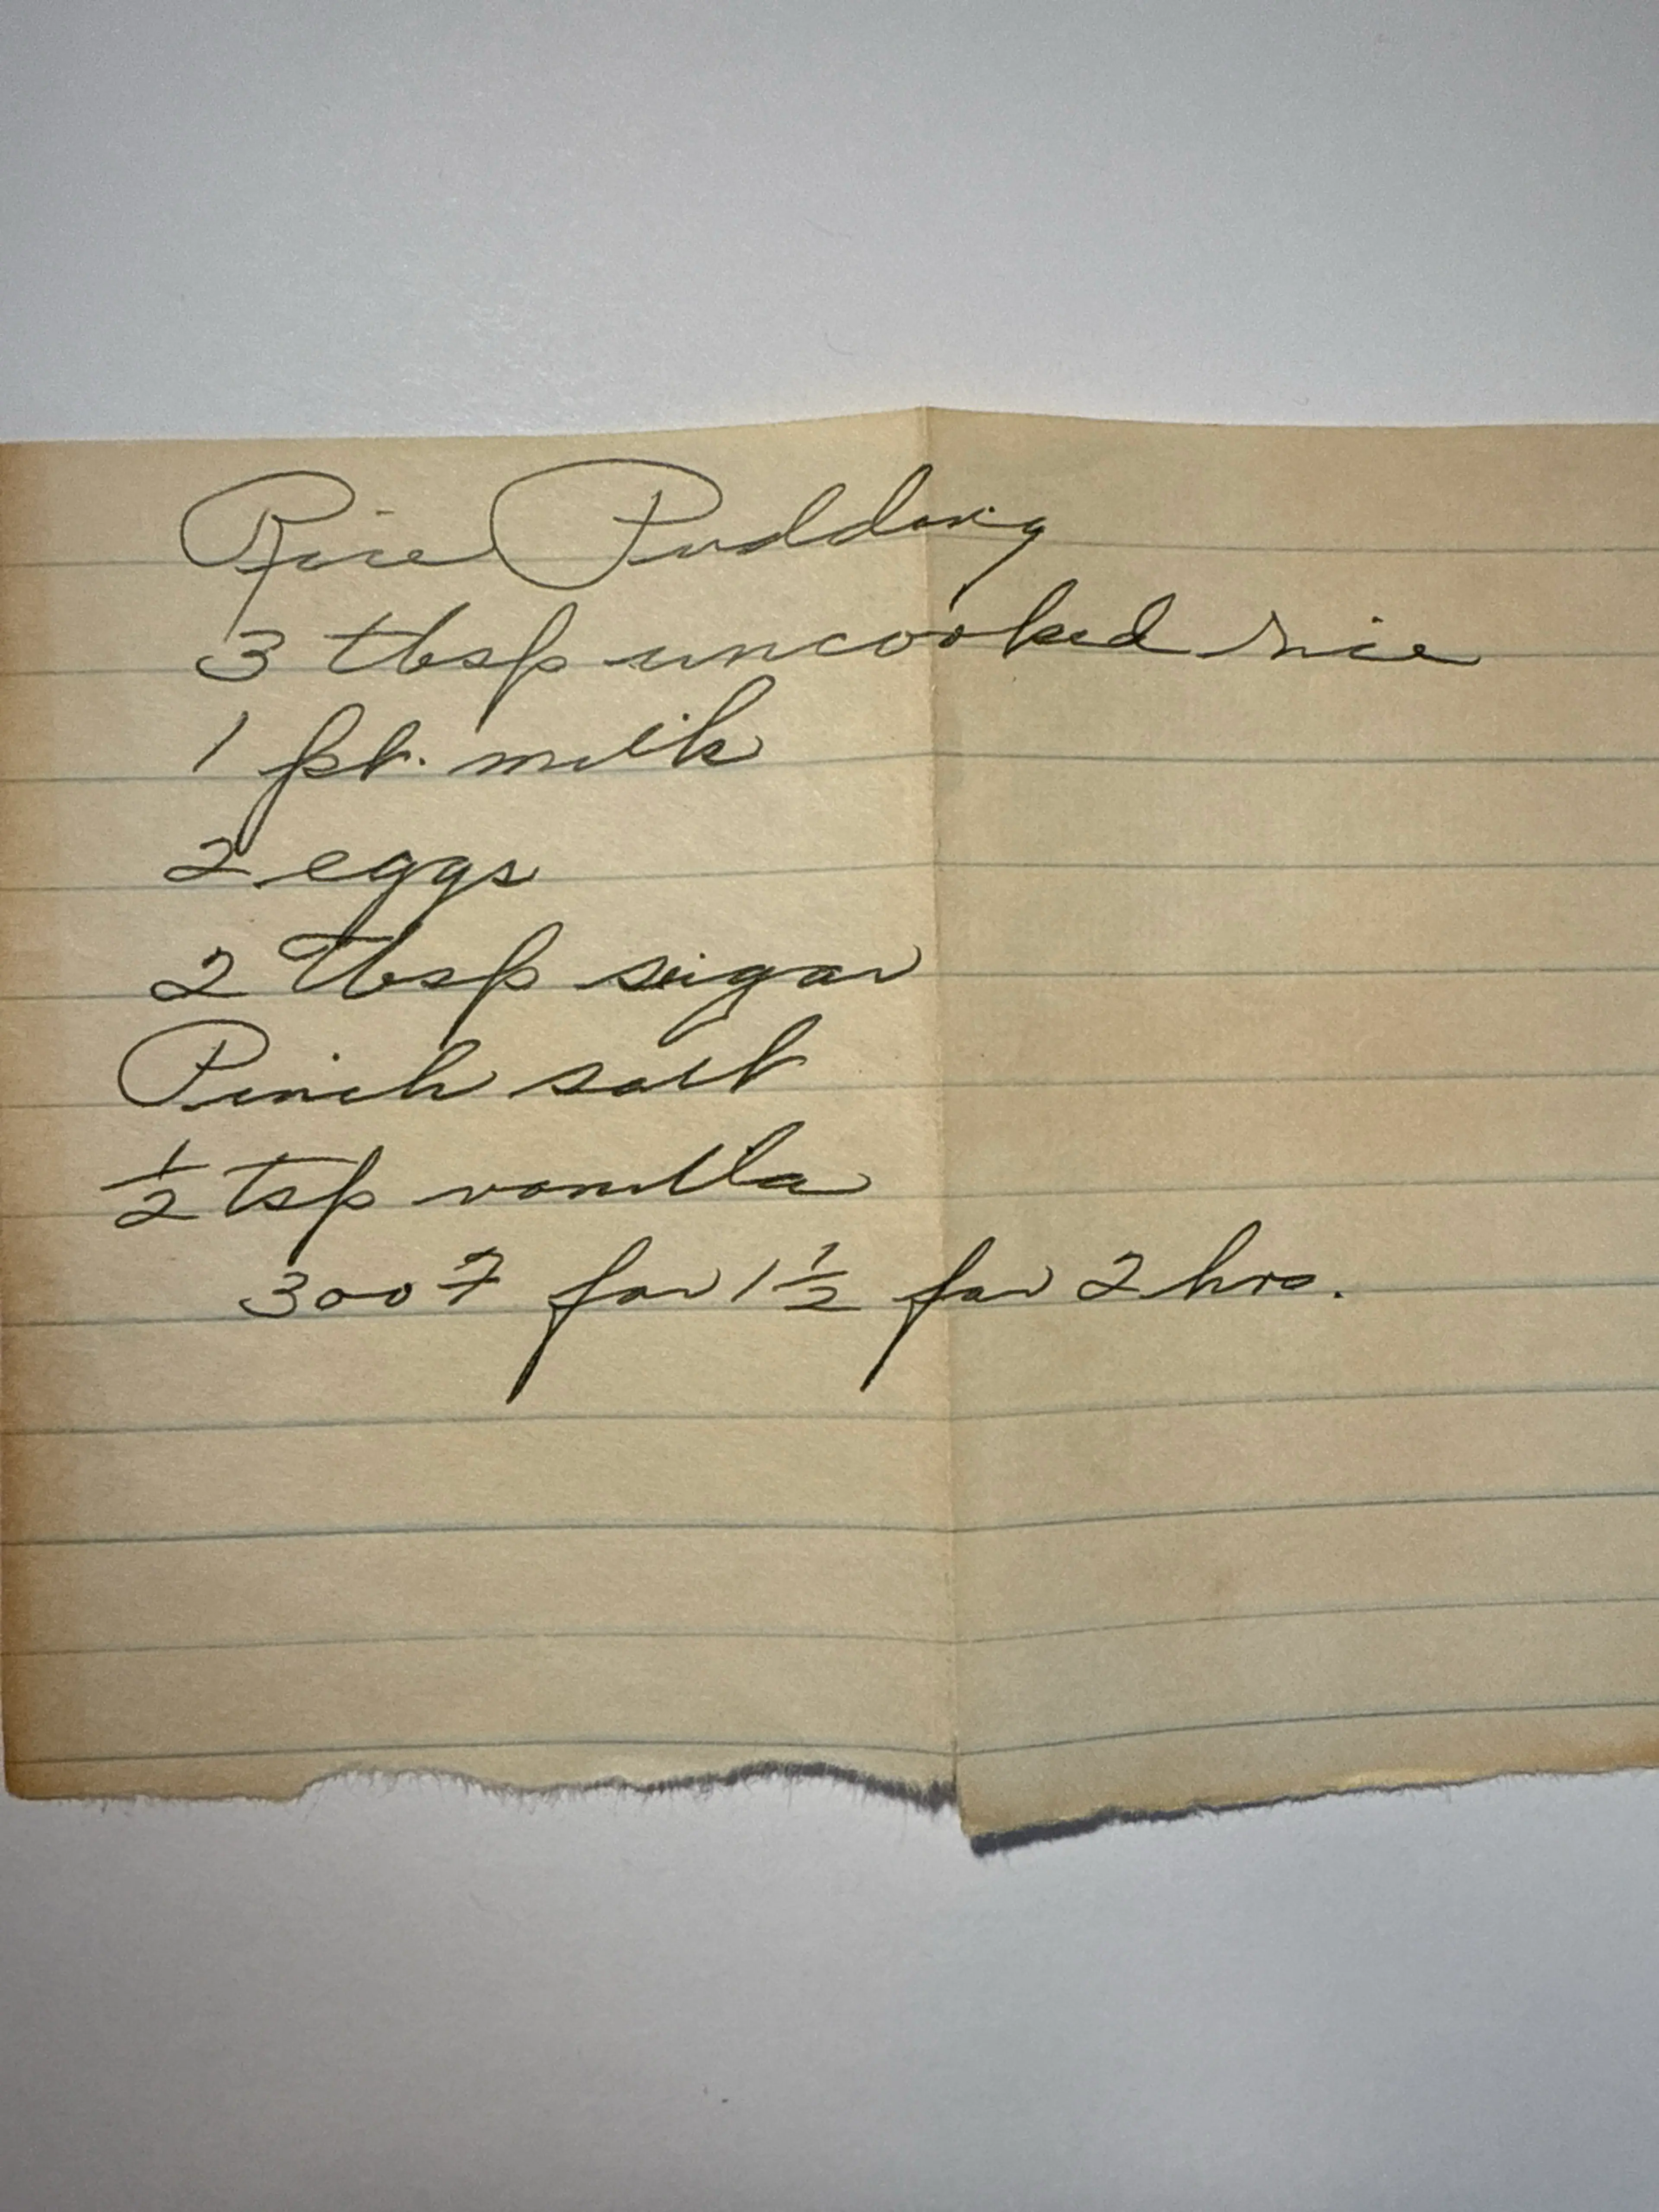 Rice Pudding
3 tbsp uncooked rice
1 pt. milk
2 eggs
2 Tbsp sugar
Pinch salt
1/2 tsp vanilla
300 F for 1 1/2 for 2 hrs.